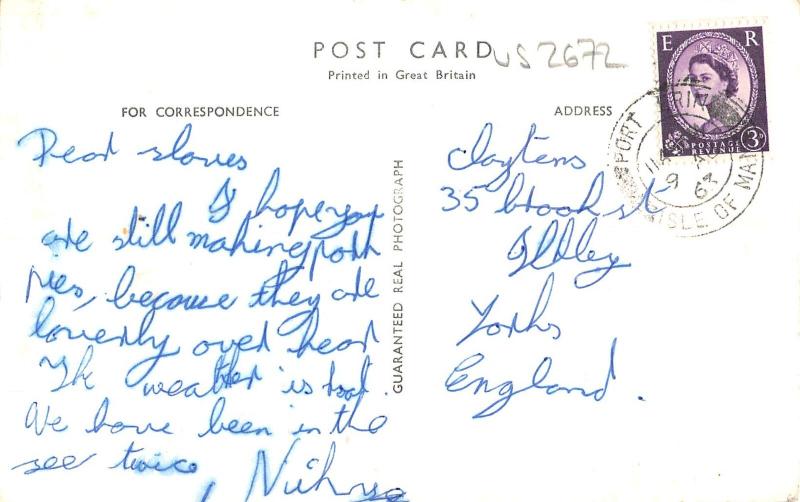 POST CARD
US 2672
Printed in Great Britain
FOR CORRESPONDENCE
Dear slaves
I hope you
are still making pork
pies, because they are
loverly over hear
The weather is hot.
We have been in the
see twice,
GUARANTEED REAL PHOTOGRAPH
ADDRESS
Claytens
35 brook st
Ilkley
Yorks
England.
E R
3D
POSTAGE
REVENUE
PORT
ISLE OF MAN
9
62